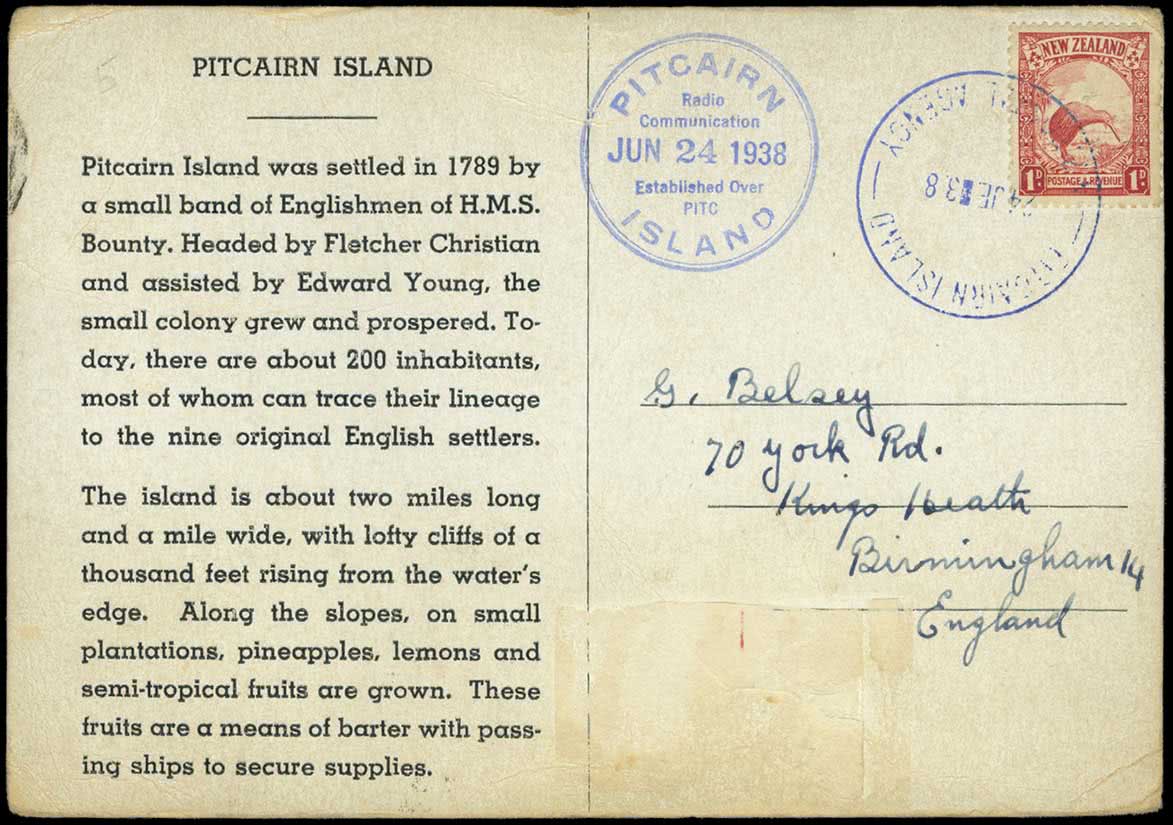 PITCAIRN ISLAND
Pitcairn Island was settled in 1789 by
a small band of Englishmen of H.M.S.
Bounty. Headed by Fletcher Christian
and assisted by Edward Young, the
small colony grew and prospered. To-
day, there are about 200 inhabitants,
most of whom can trace their lineage
to the nine original English settlers.
The island is about two miles long
and a mile wide, with lofty cliffs of a
thousand feet rising from the water's
edge. Along the slopes, on small
plantations, pineapples, lemons and
semi-tropical fruits are grown. These
fruits are a means of barter with pass-
ing ships to secure supplies.
PITCAIRN
Radio
Communication
JUN 24 1938
Established Over
PITC
ISLAND
NEW ZEALAND
1D POSTAGE & REVENUE 1D
AGENCY
24 JE 38
PITCAIRN ISLAND
G. Belsey
70 York Rd.
Kings Heath
Birmingham 14
England